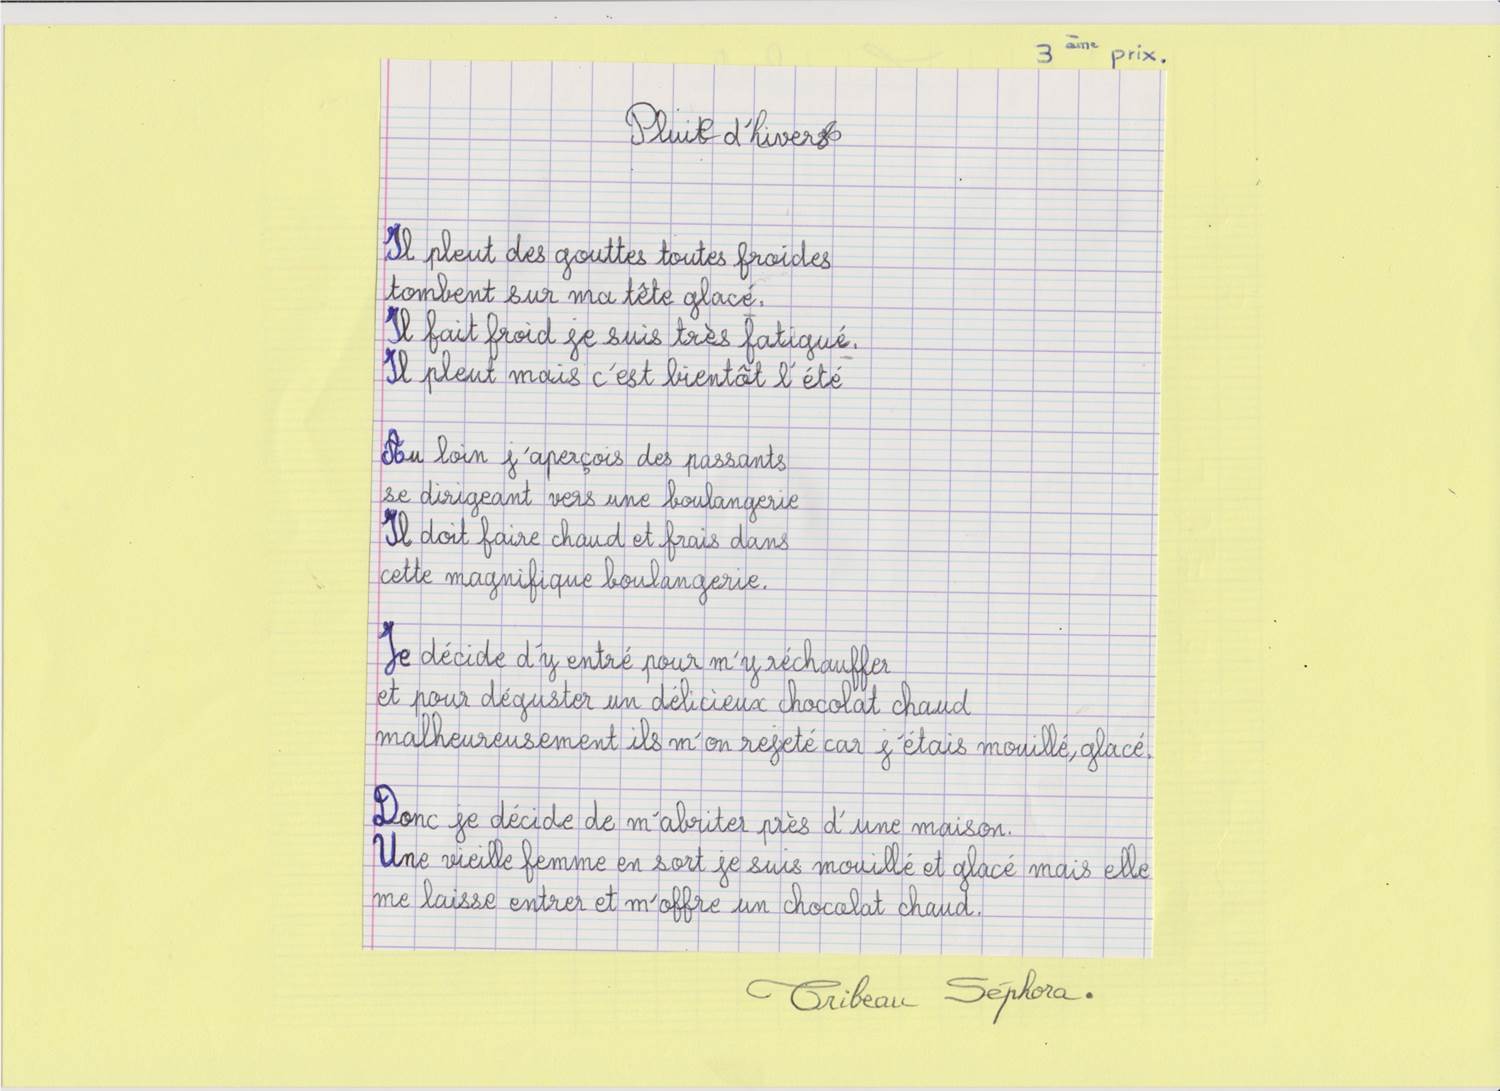 3 ème prix.
Pluit d'hivers
Il pleut des gouttes toutes froides
tombent sur ma tête glacé.
Il fait froid je suis très fatigué.
Il pleut mais c'est bientôt l'été
Au loin j'aperçois des passants
se dirigeant vers une boulangerie
Il doit faire chaud et frais dans
cette magnifique boulangerie.
Je décide d'y entré pour m'y réchauffer
et pour déguster un délicieux chocolat chaud
malheureusement ils m'on rejeté car j'étais mouillé, glacé.
Donc je décide de m'abriter près d'une maison.
Une vieille femme en sort je suis mouillé et glacé mais elle
me laisse entrer et m'offre un chocolat chaud.
Tribeau Séphora.